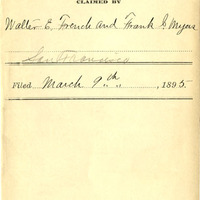 CLAIMED BY
Walter E. French and Frank G. Myers
San Francisco
Filed March 9th „ „ , 1895.